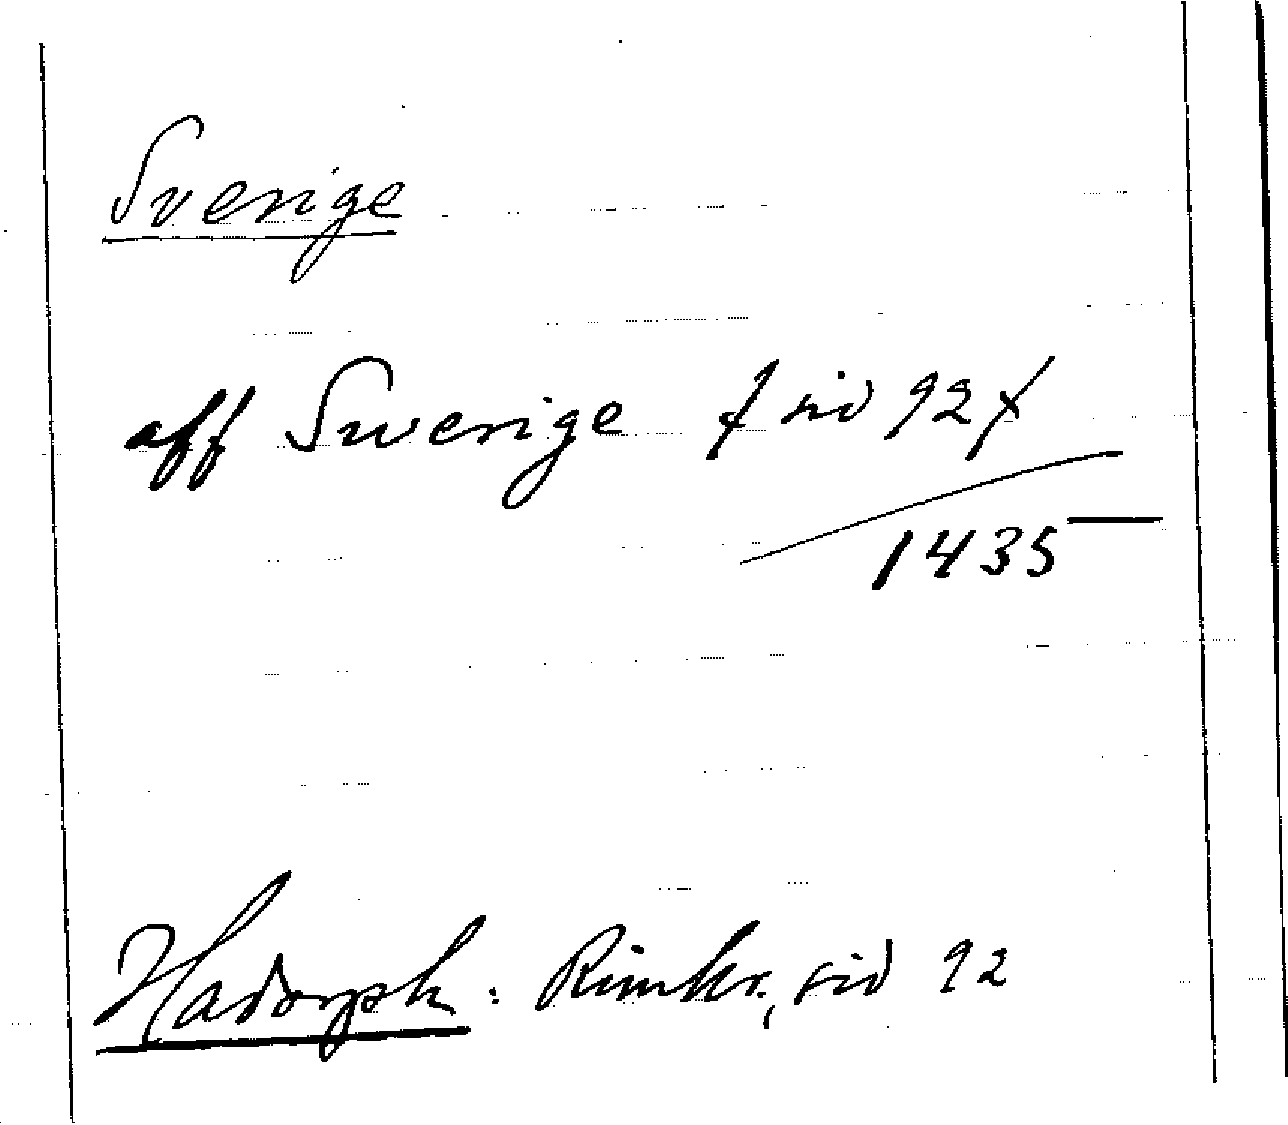 Sverige
aff Swerige / sid 92 /
1435
Hadorph: Rimkr., sid 92